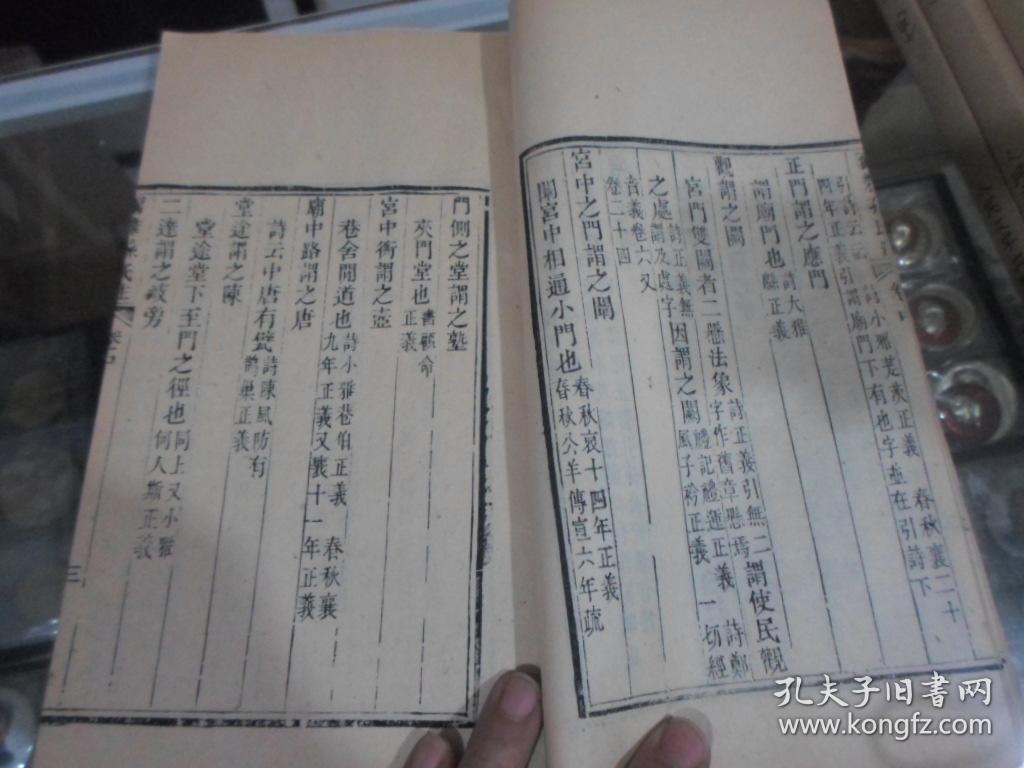 引詩云云 詩小雅 正義 春秋襄二十
四年正義引謂廟門下有也字並在引詩下
正門謂之應門 詩大雅
謂廟門也 正義
觀謂之闕
宮門雙闕者二懸法象 詩正義引無二 謂使民觀
字作舊章懸焉
詩正義無因謂之闕 禮記禮運正義 詩鄭
風子衿正義 一切經
之處謂及處字
音義卷六又
卷二十四
宮中之門謂之闈
闈宮中相通小門也 春秋哀十四年正義
春秋公羊傳宣六年疏
門側之堂謂之塾
夾門堂也 書顧命
正義
宮中衖謂之壼
巷舍閒道也 詩小雅巷伯正義 春秋襄
九年正義又襄十一年正義
廟中路謂之唐
詩云中唐有甓 詩陳風防有
鵲巢正義
堂途謂之陳
堂途堂下至門之徑也 同上又小雅
何人斯正義
二達謂之歧旁
三
孔夫子旧书网
www.kongfz.com